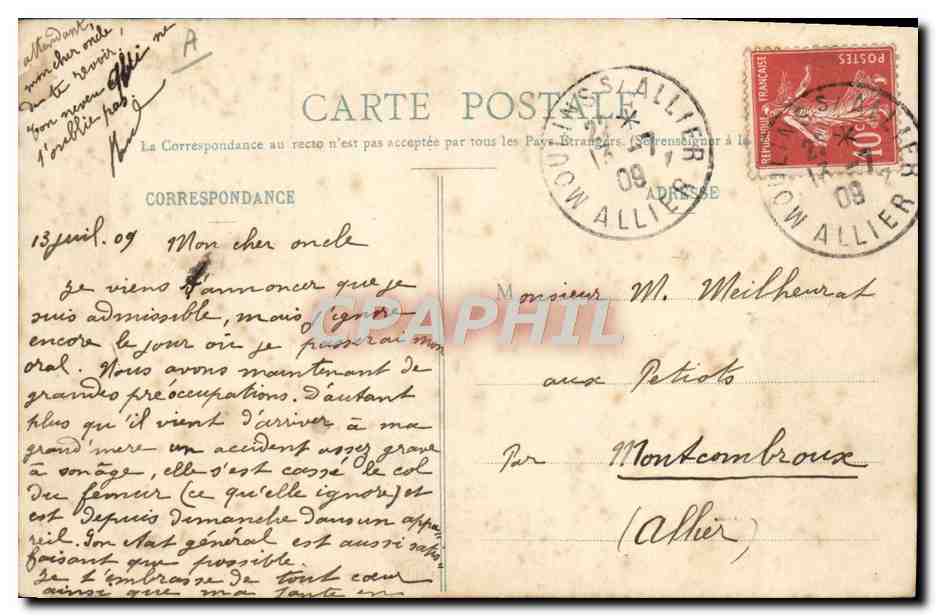 attendant,
mon cher oncle
de te revoir,
Ton neveu qui ne
t'oublie pas
A
CARTE POSTALE
La Correspondance au recto n'est pas acceptée par tous les Pays Étrangers. (Se renseigner à la
CORRESPONDANCE
ADRESSE
MOULINS S/ ALLIER
09
ALLIER
MOULINS S/ ALLIER
09
ALLIER
REPUBLIQUE FRANÇAISE
POSTES
10c
13 juil. 09 Mon cher oncle
Je viens t'annoncer que je
suis admissible, mais j'ignore
encore le jour où je passerai mon
oral. Nous avons maintenant de
grandes préoccupations. D'autant
plus qu'il vient d'arriver à ma
grand'mère un accident assez grave
à son âge, elle s'est cassé le col
du fémur (ce qu'elle ignore) et
est depuis dimanche dans un appa-
reil. Son état général est aussi satis-
faisant que possible.
Je t'embrasse de tout cœur
ainsi que ma tante en
Monsieur M. Meilheurat
aux Petiots
Par Montcombroux
(Allier)
CPAPHIL